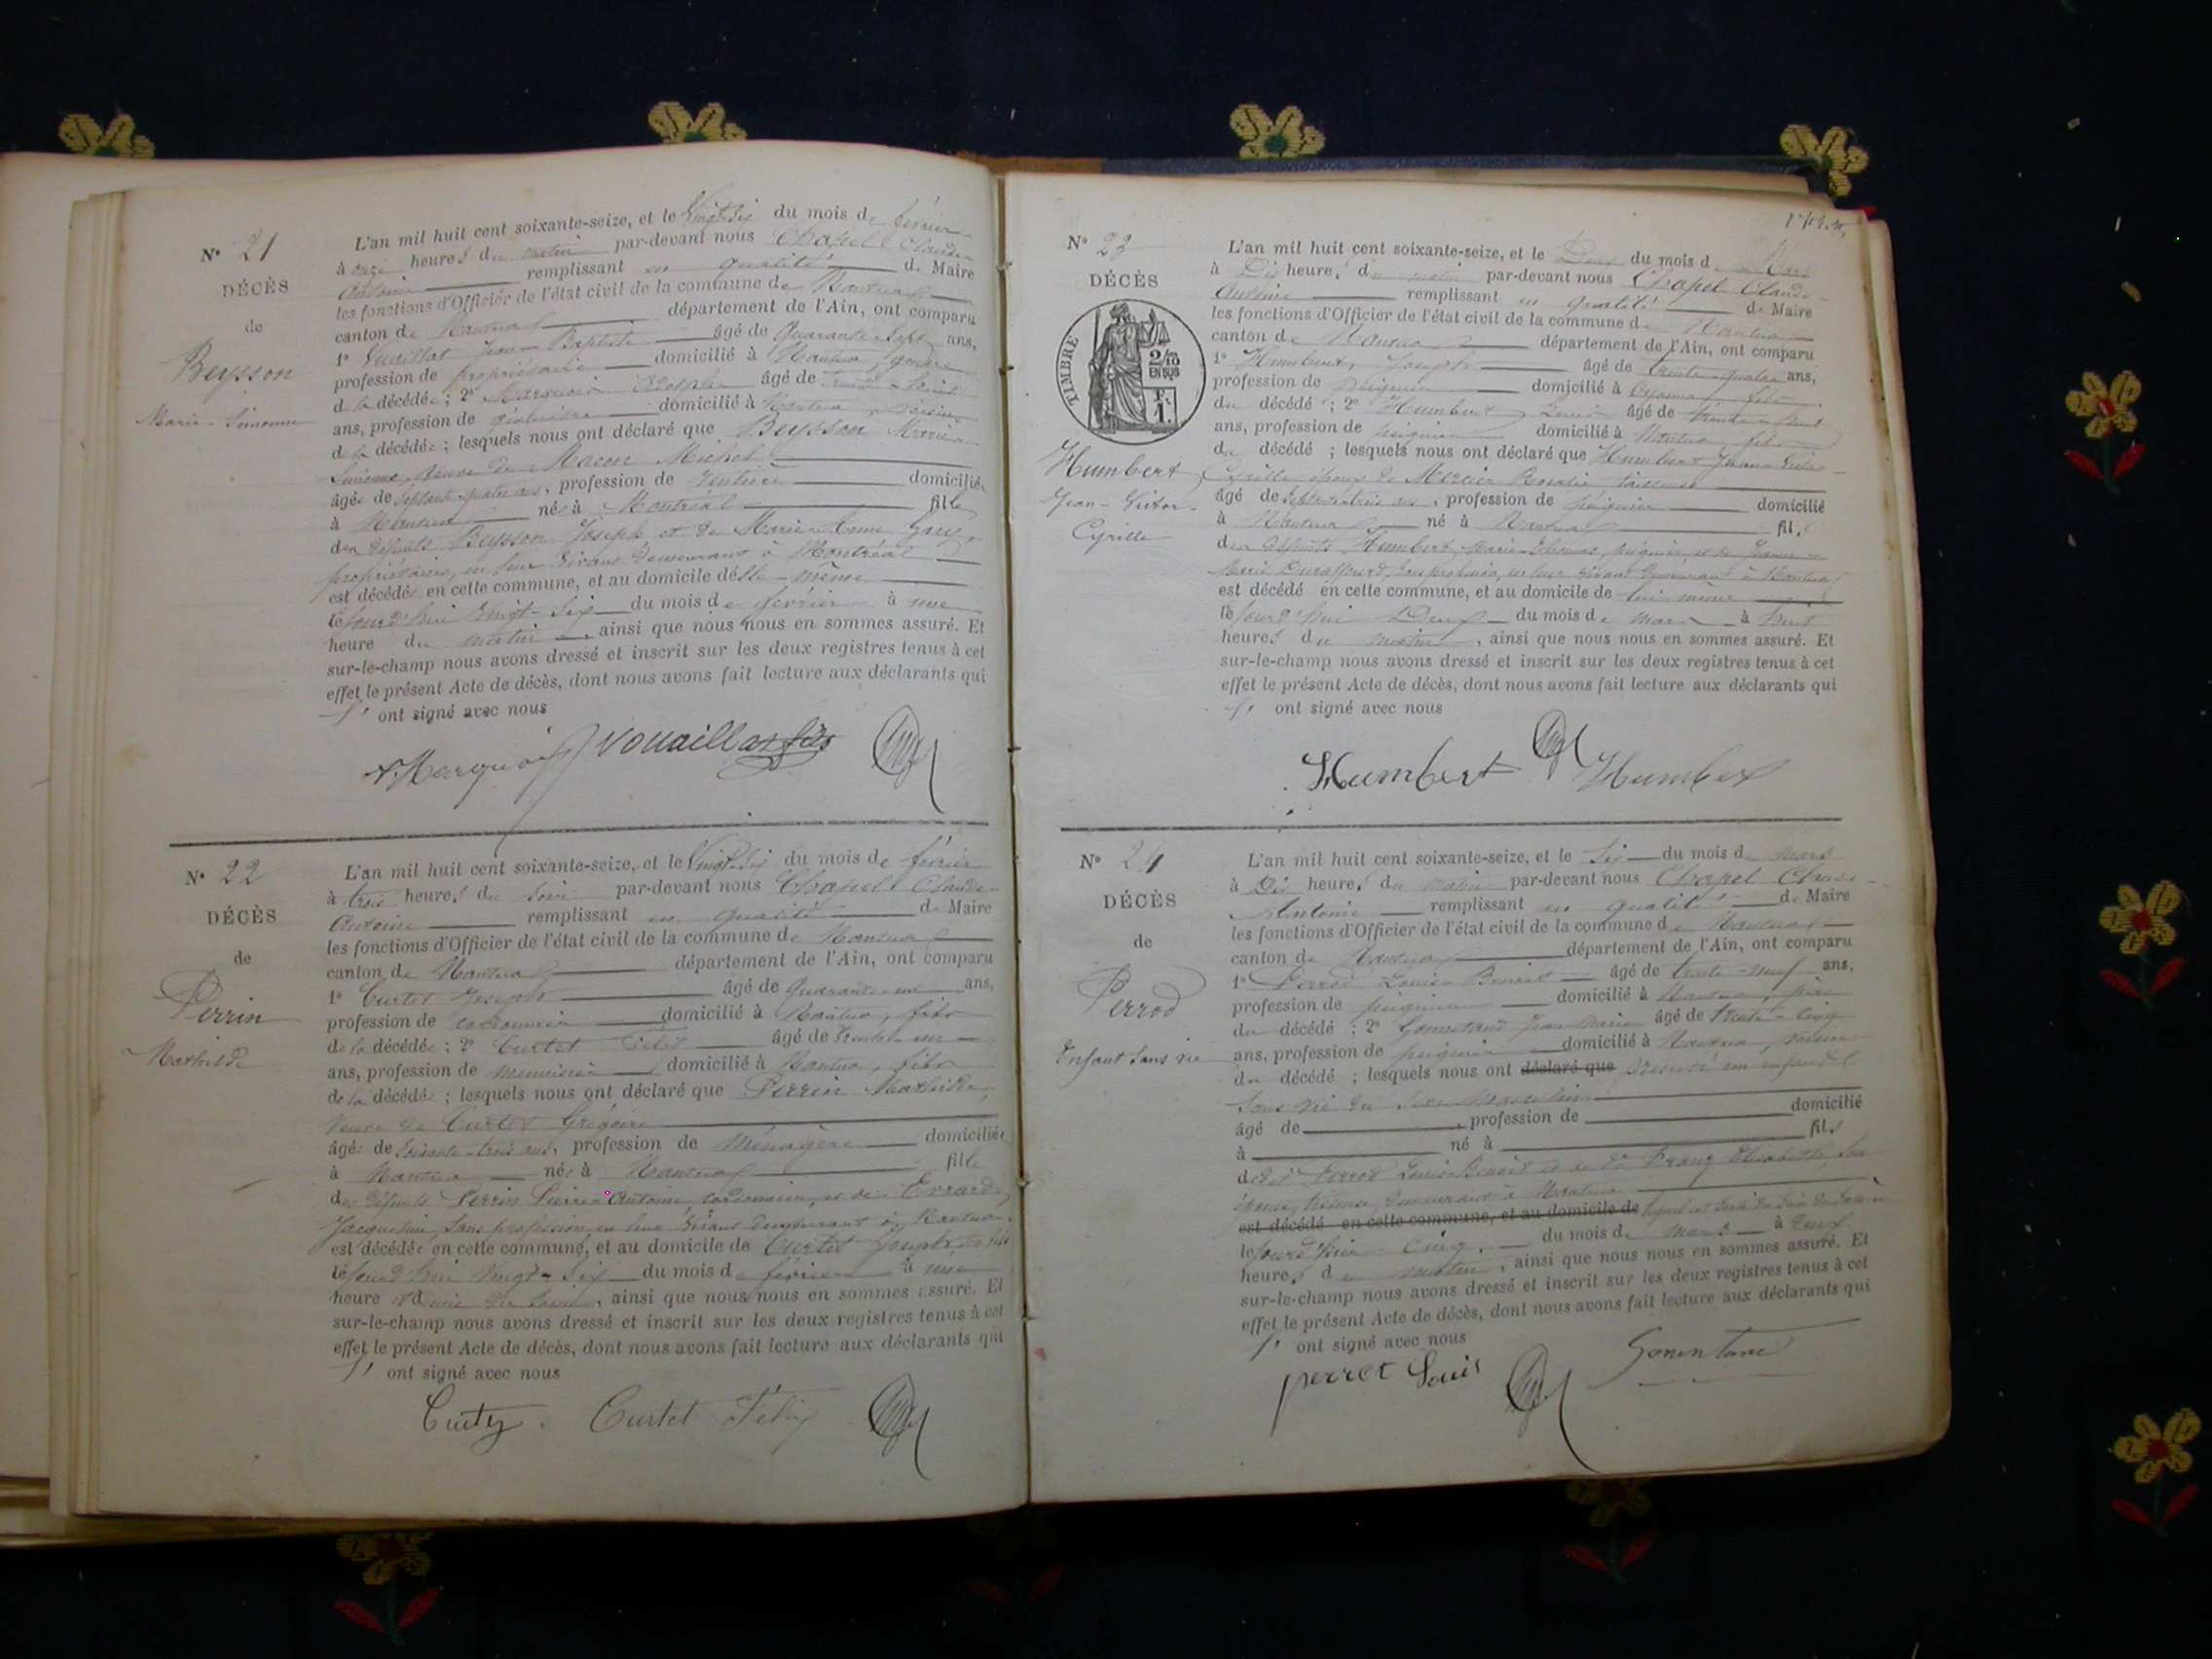 N° 21
DÉCÈS
de
Beysson
Marie-Simonne
L'an mil huit cent soixante-seize, et le Vingt-Six du mois de février
à onze heures du matin par-devant nous Chapel Claude-
Antoine remplissant en qualité de Maire
les fonctions d'Officier de l'état civil de la commune de Nantua
canton de Nantua département de l'Ain, ont comparu
1° Jean-Baptiste âgé de Quarante-Sept ans,
profession de propriétaire domicilié à Nantua, gendre
de la décédée; 2° Marquois Adolphe âgé de
ans, profession de domicilié à Nantua, voisin
de la décédée; lesquels nous ont déclaré que Beysson Marie-
Simonne, veuve de Macon Michel
âgée de septante-quatre ans, profession de rentière domiciliée
à Nantua née à Montréal fille
des défunts Beysson Joseph et de Marie-Anne
propriétaires, en leur vivant demeurant à Montréal
est décédée en cette commune, et au domicile d'elle-même
le jourd'hui vingt-six du mois de février à une
heure du matin, ainsi que nous nous en sommes assuré. Et
sur-le-champ nous avons dressé et inscrit sur les deux registres tenus à cet
effet le présent Acte de décès, dont nous avons fait lecture aux déclarants qui
ont signé avec nous
Marquois Vouaillat fils
N° 22
DÉCÈS
de
Perrin
Mathilde
L'an mil huit cent soixante-seize, et le Vingt-Six du mois de février
à trois heures du soir par-devant nous Chapel Claude-
Antoine remplissant en qualité de Maire
les fonctions d'Officier de l'état civil de la commune de Nantua
canton de Nantua département de l'Ain, ont comparu
1° Curtet Joseph âgé de Quarante-un ans,
profession de cordonnier domicilié à Nantua, fils
de la décédée; 2° Curtet Félix âgé de trente-un
ans, profession de menuisier domicilié à Nantua, fils
de la décédée; lesquels nous ont déclaré que Perrin Mathilde,
veuve de Curtet Grégoire
âgée de soixante-trois ans, profession de Ménagère domiciliée
à Nantua née à Nantua fille
des défunts Perrin Pierre-Antoine, cordonnier, et de Evrard
Jacqueline, sans profession, en leur vivant demeurant à Nantua
est décédée en cette commune, et au domicile de Curtet Joseph, son fils
le jourd'hui Vingt-Six du mois de février à une
heure et demie du soir, ainsi que nous nous en sommes assuré. Et
sur-le-champ nous avons dressé et inscrit sur les deux registres tenus à cet
effet le présent Acte de décès, dont nous avons fait lecture aux déclarants qui
ont signé avec nous
Curtet Félix
N° 23
DÉCÈS
TIMBRE
2/10
EN SUS
F.
1.
Humbert
Jean-Victor-
Cyrille
L'an mil huit cent soixante-seize, et le Deux du mois de Mars
à Dix heures du matin par-devant nous Chapel Claude-
Antoine remplissant en qualité de Maire
les fonctions d'Officier de l'état civil de la commune de Nantua
canton de Nantua département de l'Ain, ont comparu
1° Humbert, Joseph âgé de trente-quatre ans,
profession de peignier domicilié à Oyonnax, fils
du décédé; 2° Humbert Louis âgé de
ans, profession de peignier domicilié à Nantua, fils
du décédé; lesquels nous ont déclaré que Humbert Jean-Victor-
Cyrille époux de Mercier Rosalie tailleuse
âgé de septante-trois ans, profession de peignier domicilié
à Nantua né à Nantua fils
des défunts Humbert, Marie-Thomas, peignier et de Jeanne-
Marie Duraffourd, sans profession, en leur vivant demeurant à Nantua
est décédé en cette commune, et au domicile de lui-même
le jourd'hui Deux du mois de mars à huit
heures du matin, ainsi que nous nous en sommes assuré. Et
sur-le-champ nous avons dressé et inscrit sur les deux registres tenus à cet
effet le présent Acte de décès, dont nous avons fait lecture aux déclarants qui
ont signé avec nous
Humbert Humbert
N° 24
DÉCÈS
de
Perrod
Enfant sans vie
L'an mil huit cent soixante-seize, et le Six du mois de mars
à Dix heures du matin par-devant nous Chapel Claude-
Antoine remplissant en qualité de Maire
les fonctions d'Officier de l'état civil de la commune de Nantua
canton de Nantua département de l'Ain, ont comparu
1° Perrod Louis-Benoit âgé de trente-neuf ans,
profession de peignier domicilié à Nantua, père
du décédé; 2° Jean-Marie âgé de trente-cinq
ans, profession de peignier domicilié à Nantua, voisin
du décédé; lesquels nous ont déclaré que présenté un enfant
sans vie du sexe masculin
âgé de , profession de domicilié
à né à fils
dudit Perrod Louis-Benoit et de Franz Elisabeth, son
épouse, demeurant à Nantua
est décédé en cette commune, et au domicile de lequel est sorti du sein de sa mère
le jourd'hui cinq du mois de mars à neuf
heures du matin, ainsi que nous nous en sommes assuré. Et
sur-le-champ nous avons dressé et inscrit sur les deux registres tenus à cet
effet le présent Acte de décès, dont nous avons fait lecture aux déclarants qui
ont signé avec nous
perret Louis